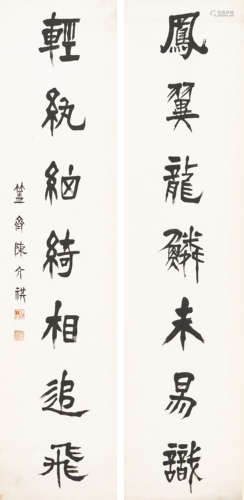 鳳翼龍鱗未易識
輕紈細綺相追飛
簠齋陳介祺